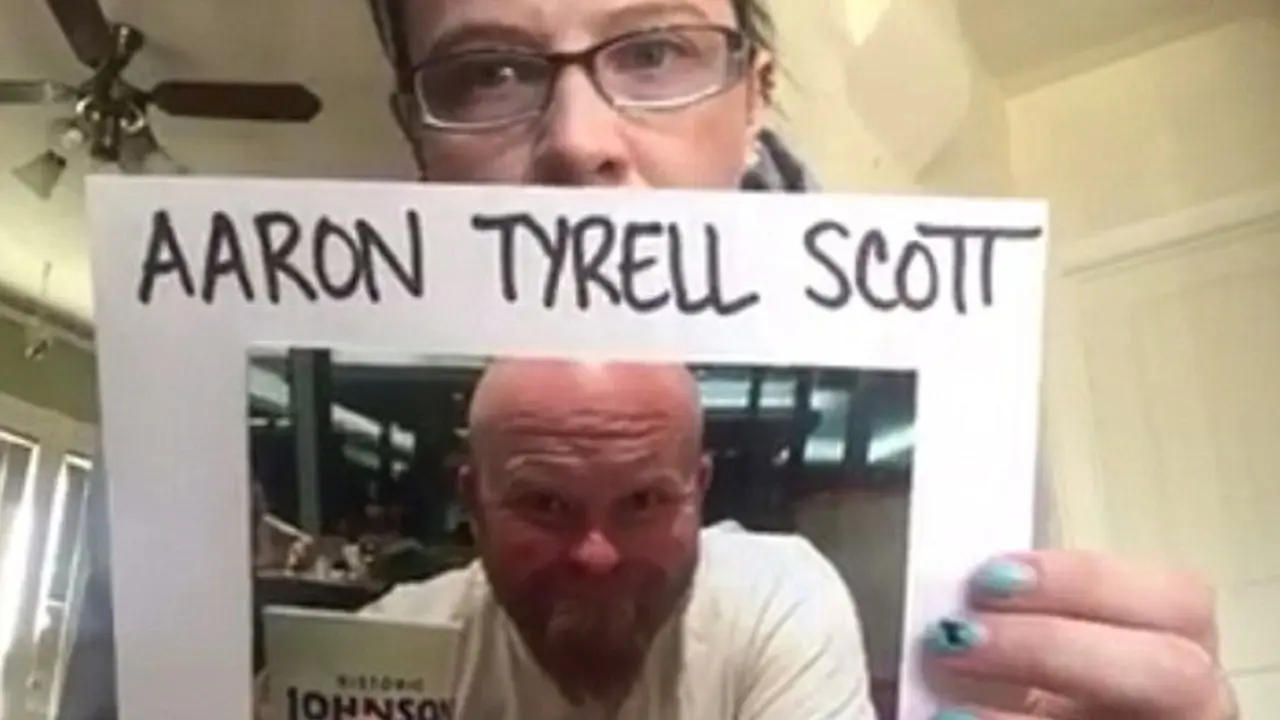 AARON TYRELL SCOTT
HISTORIC
JOHNSON